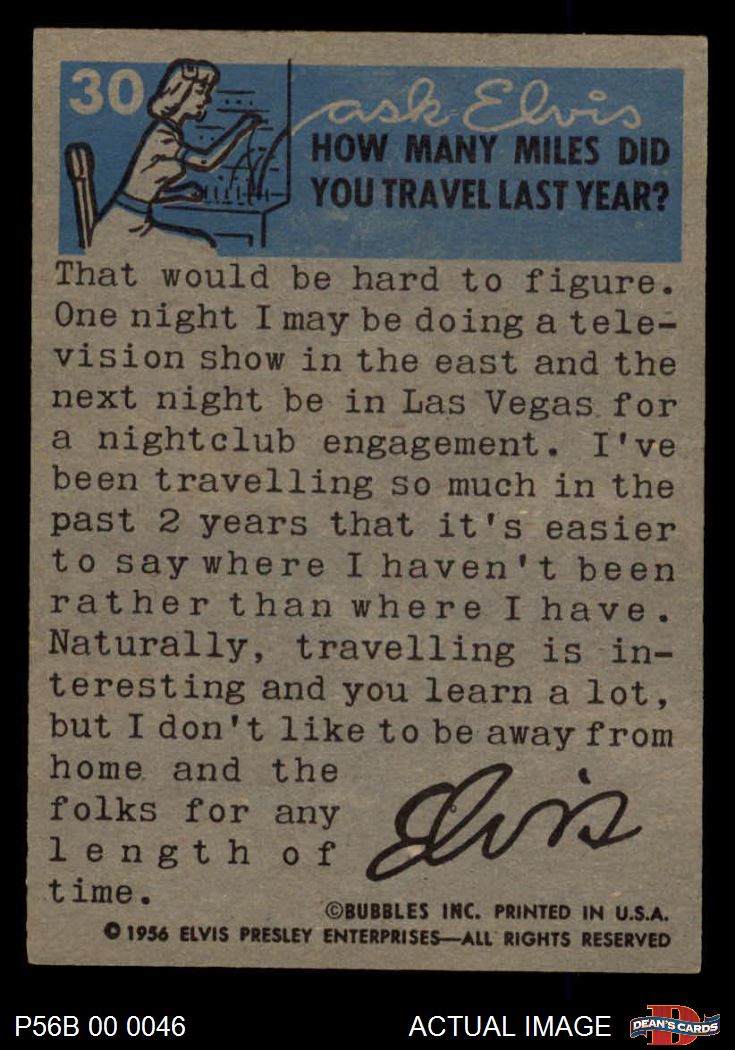 30
ask Elvis
HOW MANY MILES DID
YOU TRAVEL LAST YEAR?
That would be hard to figure.
One night I may be doing a tele-
vision show in the east and the
next night be in Las Vegas for
a nightclub engagement. I've
been travelling so much in the
past 2 years that it's easier
to say where I haven't been
rather than where I have.
Naturally, travelling is in-
teresting and you learn a lot,
but I don't like to be away from
home and the
folks for any
length of
time.
Elvis
©BUBBLES INC. PRINTED IN U.S.A.
© 1956 ELVIS PRESLEY ENTERPRISES—ALL RIGHTS RESERVED
P56B 00 0046
ACTUAL IMAGE
D
DEAN'S CARDS